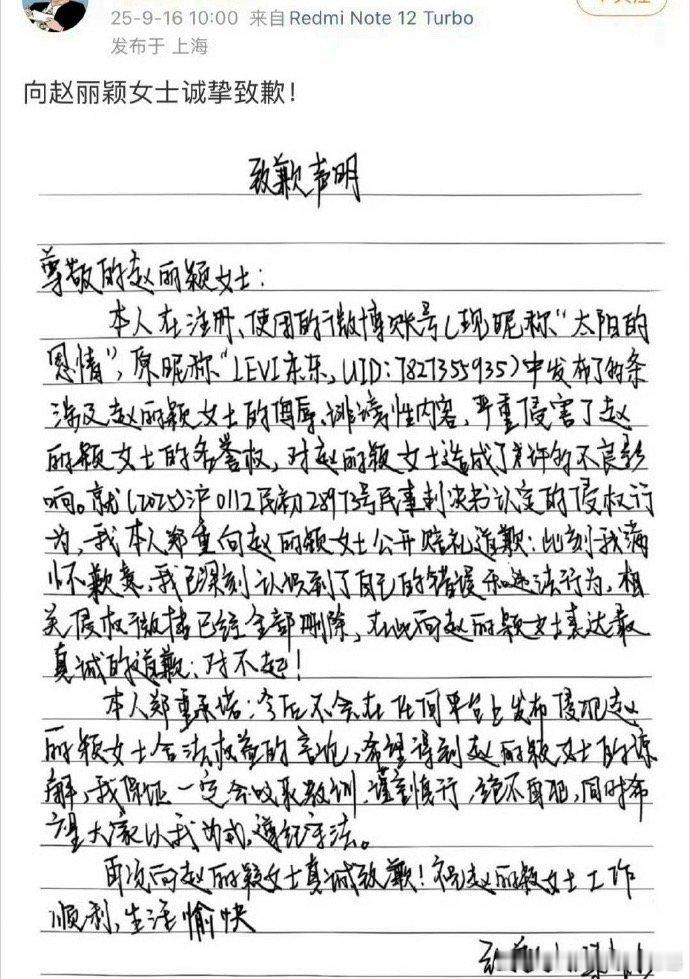 25-9-16 10:00 来自Redmi Note 12 Turbo
发布于 上海
向赵丽颖女士诚挚致歉！
致歉声明
尊敬的赵丽颖女士：
本人在注册、使用的微博账号（现昵称“太阳的
恩情”，原昵称“LEVI东东，UID：7827355935）中发布了的条
涉及赵丽颖女士的侮辱、诽谤性内容，严重侵害了赵
丽颖女士的名誉权，对赵丽颖女士造成了允许的不良影
响。就（2025）沪0112民初28973号民事判决书认定的侵权行
为，我本人郑重向赵丽颖女士公开赔礼道歉：此刻我满
怀歉意，我已深刻认识到了自己的错误和违法行为，相
关侵权微博已经全部删除，在此向赵丽颖女士表达最
真诚的道歉：对不起！
本人郑重承诺：今后不会在任何平台上发布侵犯赵
丽颖女士合法权益的言论，希望得到赵丽颖女士的谅
解，我保证一定会吸取教训，谨言慎行，绝不再犯，同时希
望大家以我为戒，遵纪守法。
再次向赵丽颖女士真诚致歉！祝赵丽颖女士工作
顺利，生活愉快